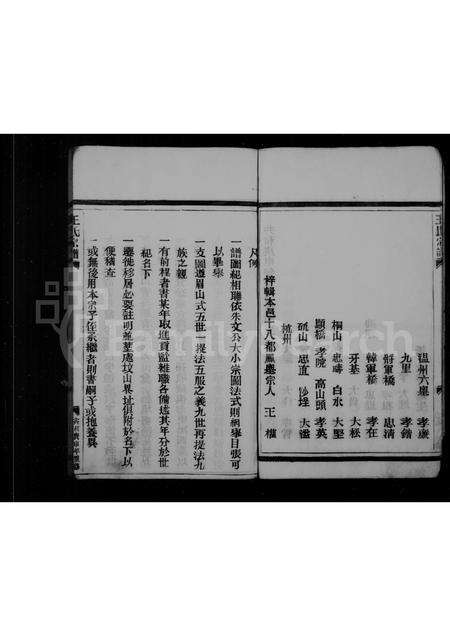 溫州六堡 孝康
九里 孝鍇
薛軍橋 忠清
韓軍橋 孝在
牙基 大松
桐山 忠疇 白水 大堅
顯橋 孝院 高山頭 孝英
砥山 忠直 沙埕 大溫
梓輯本邑十八都 宗人 王權
凡例
一譜圖紀相聯依朱文公大小宗圖法式則綱舉目張可
以畢舉
一支圖遵眉山式五世一提法五服之義九世再提法九
族之親
一有前程者書某年取進貢監雜職各備述其年分於世
紀名下
一遷徙移居必要註明葬某處坟山某址俱附於名下以
便稽查
一或無後用本宗子侄承繼者則書嗣子或抱養異
王氏宗譜
FamilySearch